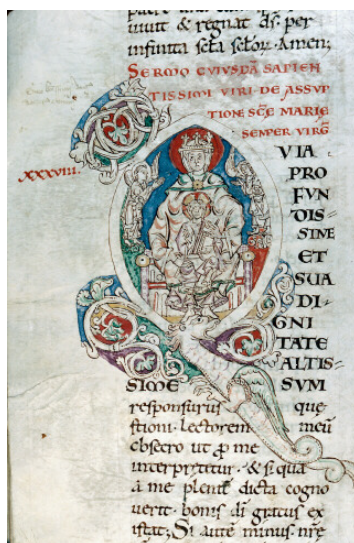 uiuit & regnat ds. per
infinita scła scłoꝝ. Amen;
SERMO CVIVSDĀ SAPIEN
TISSIMI VIRI DE ASSVP
TIONE SCĒ MARIE
SEMPER VIRḠ
XXXVIII.
VIA
PRO
FVN
DIS=
SINE
ET
SUA
DI
GNI
TATE
ALTIS=
SIME SVM
responsurus que
stioni. Lectorem meū
obsecro ut ꝑ me
interp̄titur. & si qua
a me plene dicta cogno
uerit. bonis di gratus ex
istat; Si autē minus.